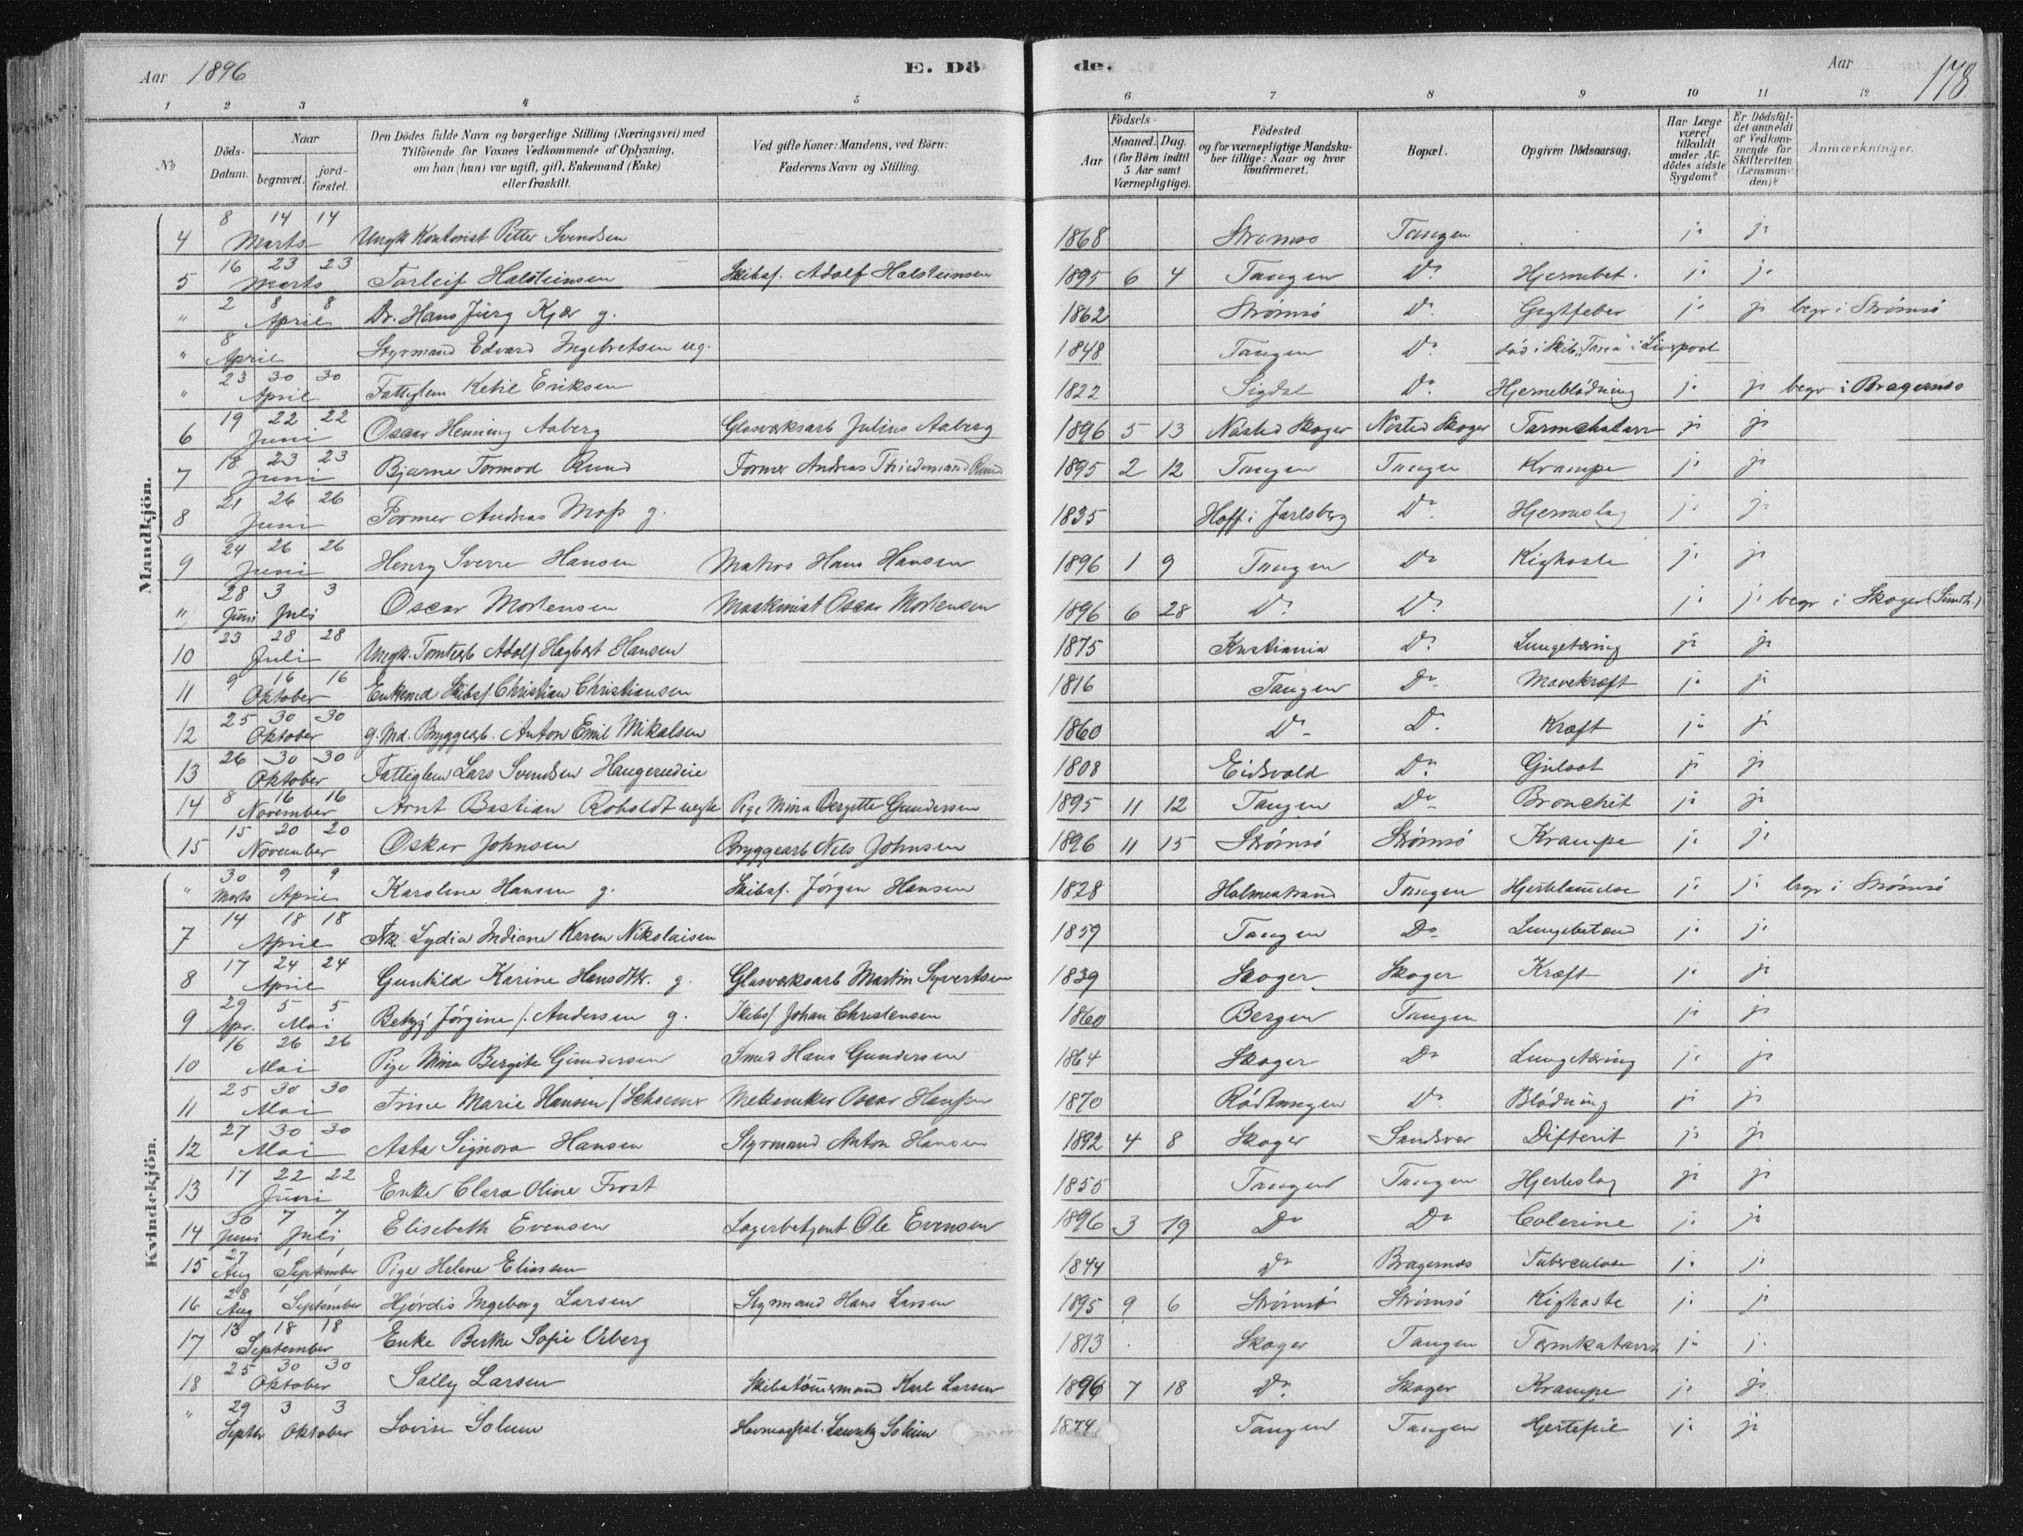 Aar 1896 E. Döde. Aar 178
1 2 3 4 5 6 7 8 9 10 11 12
No Döds-Datum. Naar begravet. jordfæstet. Den Dödes fulde Navn og borgerlige Stilling (Næringsvei) med Tilföiende for Voxnes Vedkommende af Oplysning, om han (hun) var ugift, gift, Enkemand (Enke) eller fraskilt. Ved gifte Koner: Mandens, ved Börn: Faderens Navn og Stilling. Födsels- Aar Maaned. Dag. (for Börn indtil 5 Aar samt Værnepligtige). Födested og for værnepligtige Mandskaber tillige: Naar og hvor konfirmeret. Bopæl. Opgiven Dödsaarsag. Har Læge været tilkaldt under Afdödes sidste Sygdom? Er Dödsfaldet anmeldt af Vedkommende for Skifteretten (Lensmanden)? Anmærkninger.
Mandkjön.
4 8 14 14 Marts Ungk Kontorist Petter Svendsen 1868 Strømsø Tangen ja ja
5 16 23 23 Marts Torleif Halsteinsen Skibsf. Adolf Halsteinsen 1895 6 4 Tangen Do Hjernebet. ja ja
" 2 8 8 April Dr. Hans Jürg Kjær g. 1862 Strømsö Do Gigtfeber ja ja begr i Strømsö
" 8 April Styrmand Edvard Ingebretsen ug. 1848 Tangen Do død i Skib i Liverpool
" 23 30 30 April Fattiglem Ketil Eriksen 1822 Sigdal Do Hjerneblödning ja ja begr i Bragernes
6 19 22 22 Juni Oscar Henning Aaberg Glasværksarb Julius Aaberg 1896 5 13 Nösted Skoger Nösted Skoger Tarmchatarr ja ja
7 18 23 23 Juni Bjarne Tormod Ruud Former Andreas Thidemand Ruud 1895 2 12 Tangen Tangen Krampe ja ja
8 21 26 26 Juni Former Andreas Moss g. 1835 Hoff i Jarlsberg Do Hjerneslag ja ja
9 24 26 26 Juni Henry Sverre Hansen Matros Hans Hansen 1896 1 9 Tangen Do Kighoste ja ja
" 28 3 3 Juni Juli Oscar Mortensen Maskinist Oscar Mortensen 1896 6 28 Do Do ja ja begr i Skoger
10 23 28 28 Juli Ungk. Tomtearb Adolf Hagbart Hansen 1875 Kristiania Do Lungetæring ja ja
11 9 16 16 Oktober Enkemd Skibsf. Christian Christiansen 1816 Tangen Do Mavekræft ja ja
12 25 30 30 Oktober g. Md. Bryggearb. Anton Emil Mikalsen 1860 Do Do Kræft ja ja
13 26 30 30 Oktober Fattiglem Lars Svendsen Haugerudeie 1808 Eidsvold Do Gulsot ja ja
14 8 16 16 November Arnt Bastian Roholdt uegte Pige Mina Bergitte Gundersen 1895 11 12 Tangen Do Bronchit ja ja
15 15 20 20 November Oskar Johnsen Bryggearb Nels Johnsen 1896 11 15 Strömsö Strömsö Krampe ja ja
Kvindekjön.
" 30 9 9 Marts April Karoline Hansen g. Skibsf. Jørgen Hansen 1828 Holmestrand Tangen Hjertelammelse ja ja begr i Strömsö
7 14 18 18 April Frk. Lydia Indiane Karen Nikolaisen 1859 Tangen Do Lungebetænd ja ja
8 17 24 24 April Gunhild Karine Hansdttr. g. Glasværksarb Martin Syvertsen 1839 Skoger Skoger Kræft ja ja
9 29 5 5 Apr. Mai Betzy Jörgine f. Andersen g. Skibsf Johan Christensen 1860 Bergen Tangen ja ja
10 16 26 26 Mai Pige Mina Bergite Gundersen Smed Hans Gundersen 1864 Skoger Do Lungetæring ja ja
11 25 30 30 Mai Trine Marie Hansen f Mekaniker Oscar Hansen 1870 Rödtangen Do Blödning ja ja
12 27 30 30 Mai Asta Signora Hansen Styrmand Anton Hansen 1892 4 8 Skoger Sandsvær Difterit ja ja
13 17 22 22 Juni Enke Clara Oline Frost 1855 Tangen Tangen Hjerteslag ja ja
14 30 7 7 Juni Juli Elisebeth Evensen Lagerbetjent Ole Evensen 1896 3 19 Do Do Colerine ja ja
15 27 1 1 Aug September Pige Helene Eliassen 1844 Do Bragernæs Tuberculose ja ja
16 28 1 1 Aug September Hjördis Ingeborg Larsen Styrmand Hans Larsen 1895 9 6 Strömsö Strömsö Kighoste ja ja
17 13 18 18 September Enke Berthe Sofie Orberg 1813 Skoger Tangen Tarmkatarrh ja ja
18 25 30 30 Oktober Sally Larsen Skibstömmermand Karl Larsen 1896 7 18 Do Skoger Krampe ja ja
" 29 3 3 Septbr Oktober Lovise Solum Lauritz Solum 1874 Tangen Tangen Hjertefeil ja ja